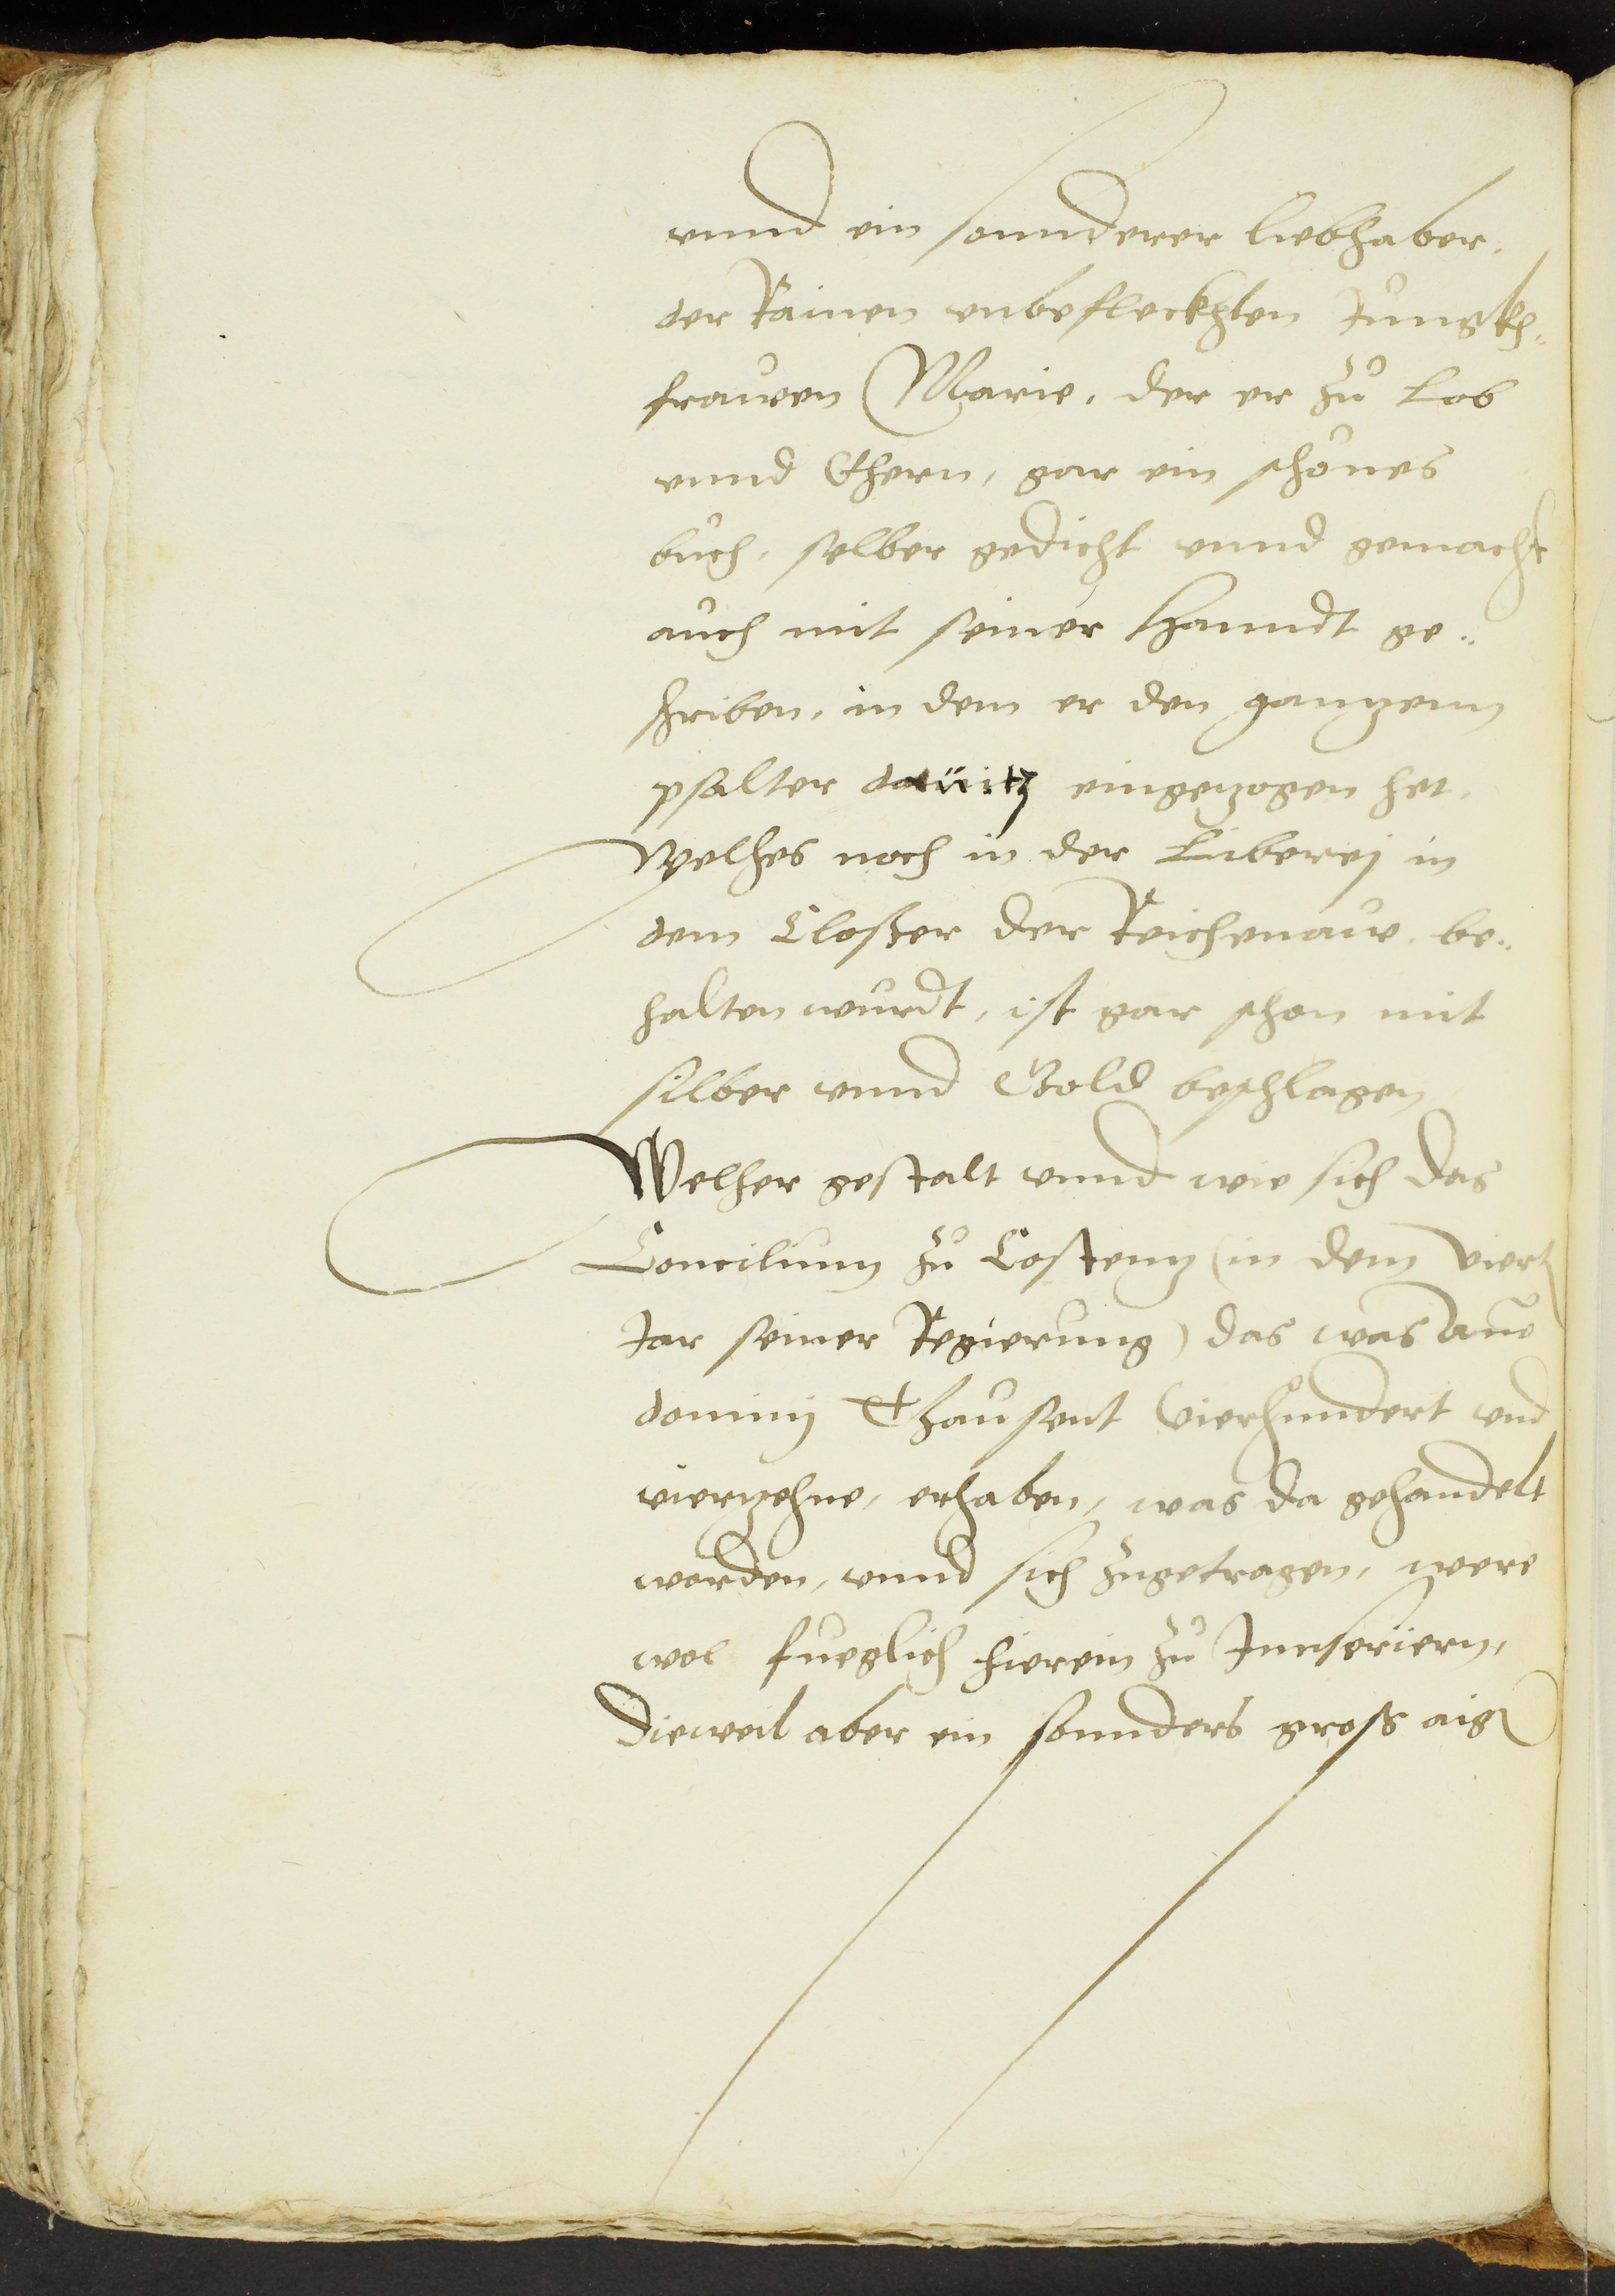 vnnd ein sonnderer liebhaber,
der Rainen vnbefleckhten Jungkh„
frawen Marie, der er zů Lob
vnnd Ehern, gar ein schönes
bůch, selber gedicht vnnd gemacht
auch mit seiner Hanndt ge„
schriben, in dem er den gantzenn
psalter dauitz eingezogen het,
Welhes noch in der Liberej in
dem Closter der Reichenaw be„
halten wurdt, ist gar schon mit
silber vnnd Gold beschlagen
Welher gestalt vnnd wie sich das
Concilium zů Costentz (in dem viert
Jar seiner Regierung) das was Anno
dominj Thausent Vierhundert vnd
vierzehne, erhaben, was da gehandelt
worden, vnnd sich zugetragen, were
wol fueglich hierein zů Innseriern,
Dieweil aber ein sonnders gross aig